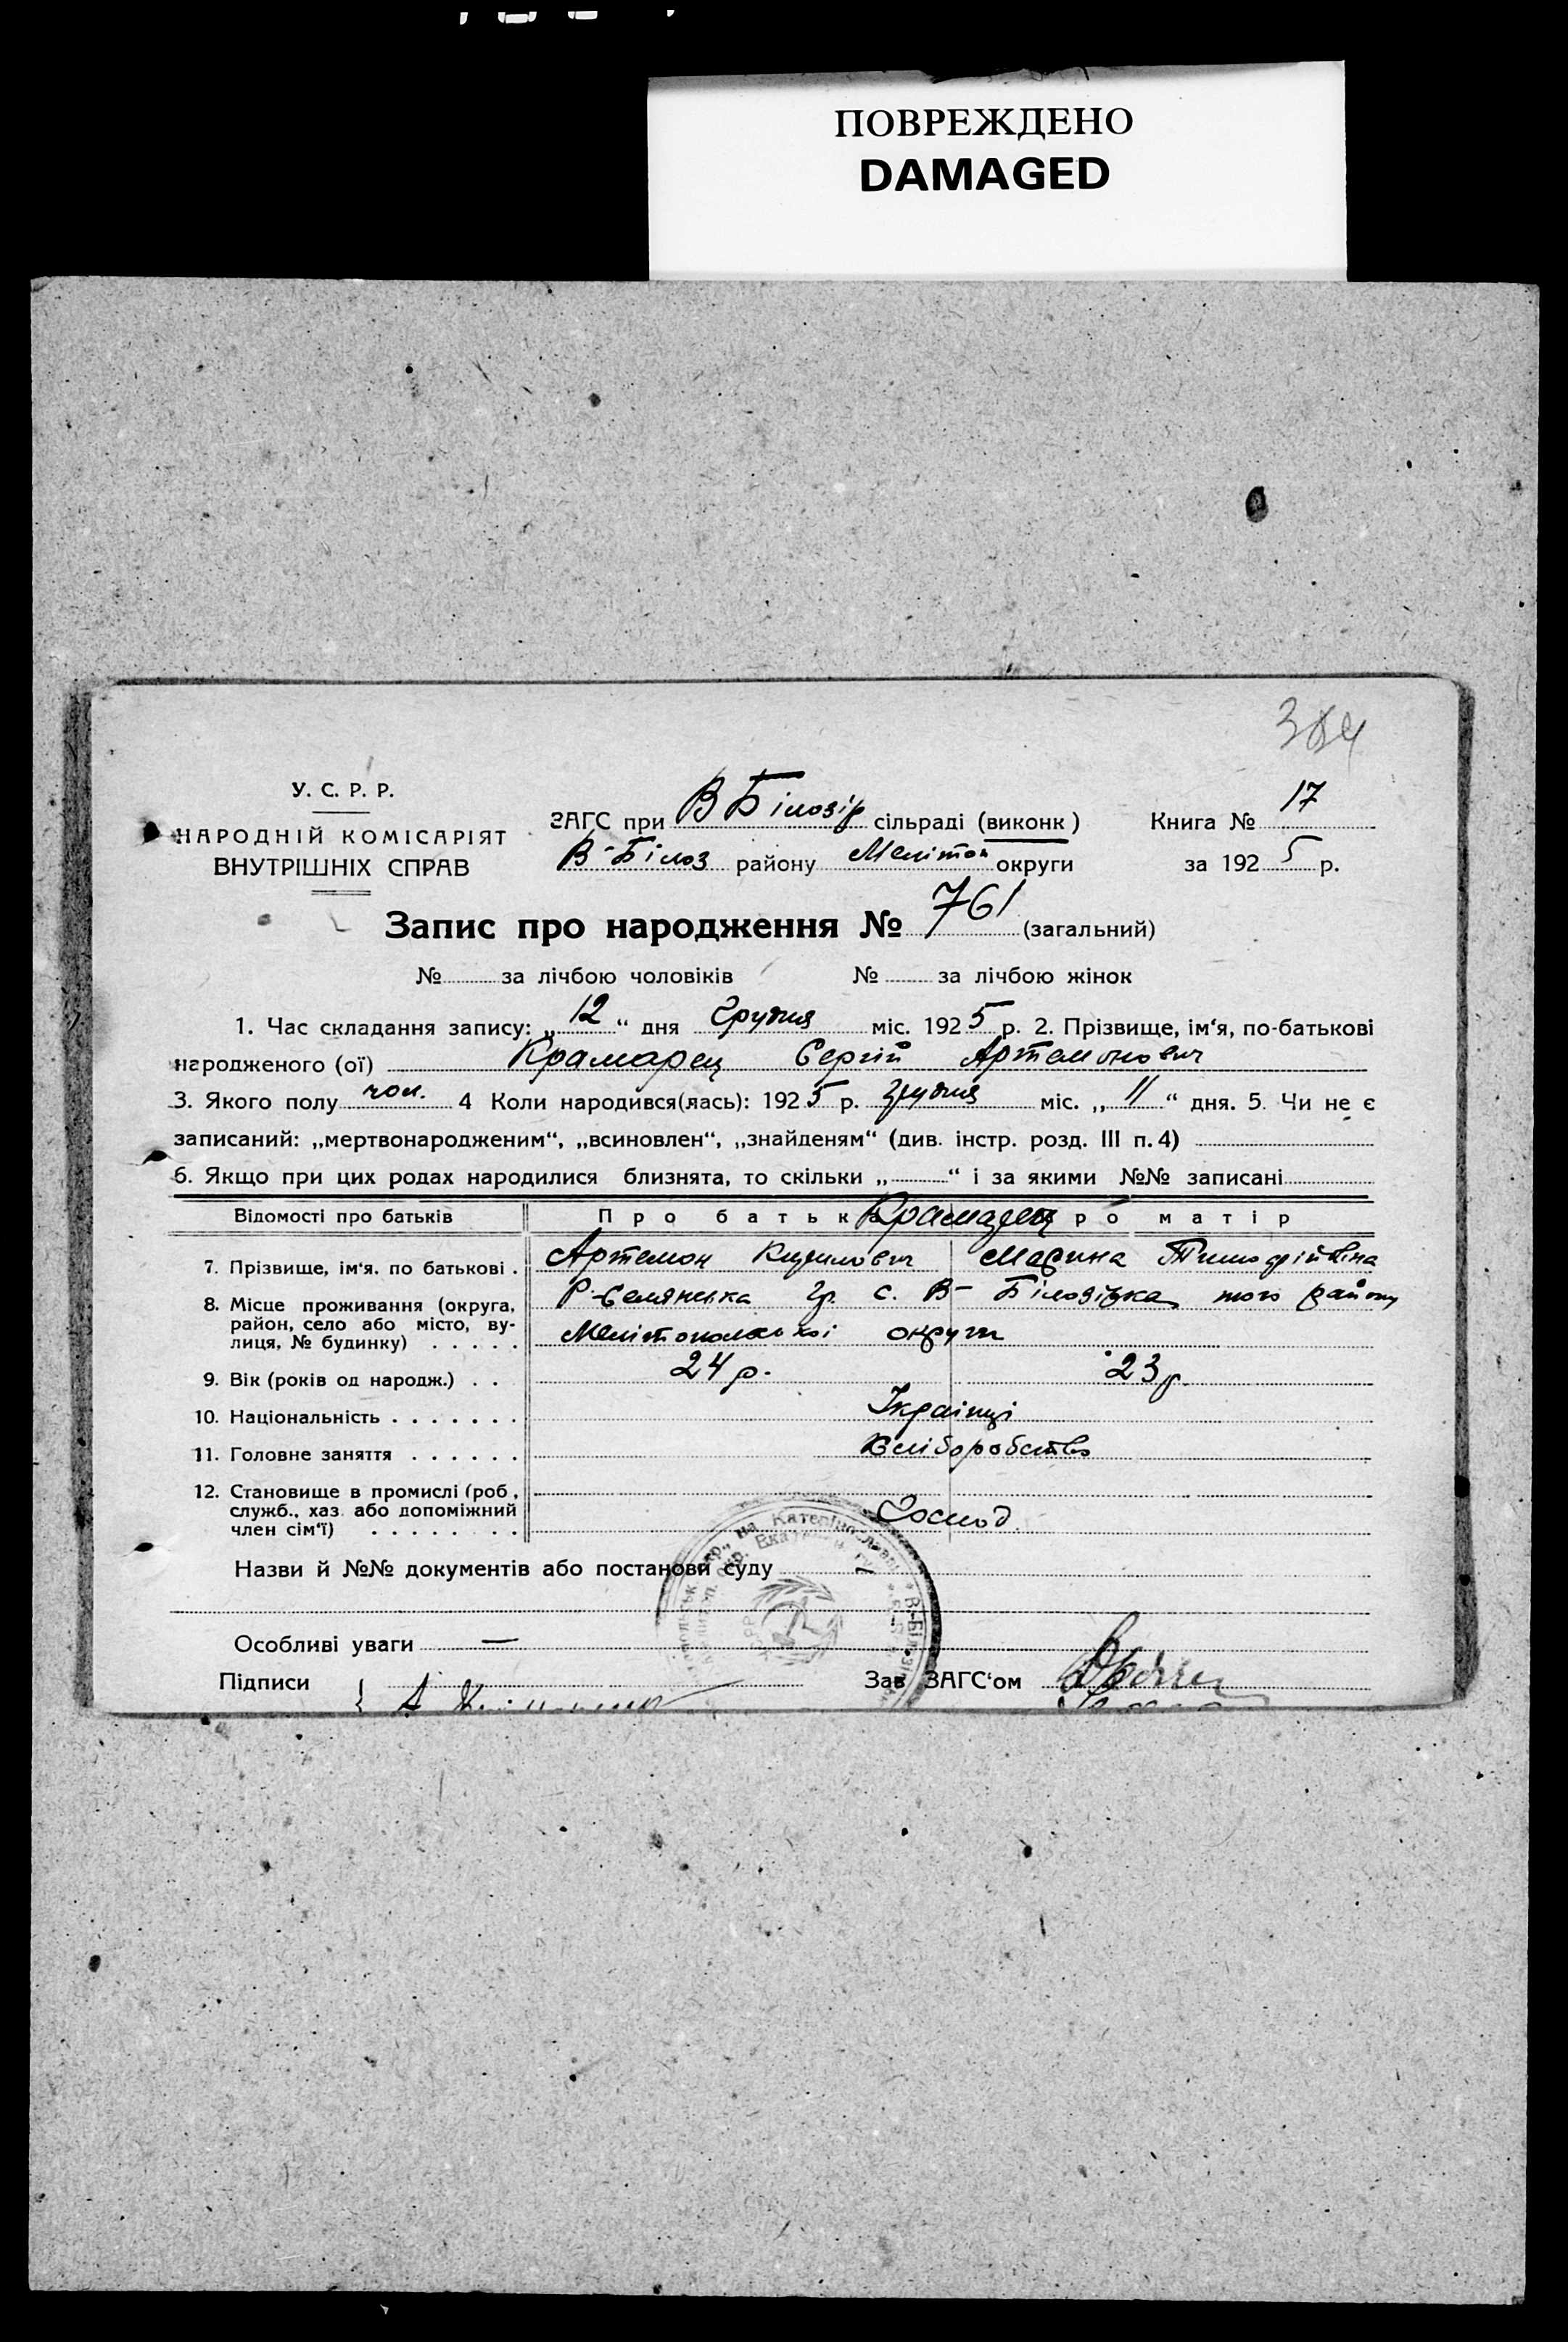 ПОВРЕЖДЕНО
DAMAGED
384
У. С. Р. Р.
НАРОДНІЙ КОМІСАРІЯТ
ВНУТРІШНІХ СПРАВ
ЗАГС при В Білозір сільраді (виконк)
В-Білоз району Мелітоп округи
Книга № 17
за 1925 р.
Запис про народження № 761 (загальний)
№ за лічбою чоловіків № за лічбою жінок
1. Час складання запису: „12“ дня Грудня міс. 1925 р. 2. Прізвище, ім‘я, по-батькові
народженого (ої) Крамарец Сергій Артемонович
3. Якого полу чол. 4 Коли народився(лась): 1925 р. Грудня міс. „11“ дня. 5. Чи не є
записаний: „мертвонародженим“, „всиновлен“, „знайденям“ (див. інстр. розд. III п. 4)
6. Якщо при цих родах народилися близнята, то скільки „ “ і за якими №№ записані
Відомості про батьків Про батька Крамарец Про матір
7. Прізвище, ім‘я. по батькові . Артемон Кирилович Марина Тимофіївна
8. Місце проживання (округа, район, село або місто, вулиця, № будинку) . . . . .
Р-Селянська гр. с. В- Білозірка того району
Мелітопольської округи
9. Вік (років од народж.) . . 24 р. 23 р.
10. Національність . . . . . . . Українці
11. Головне заняття . . . . . . Хліборобство
12. Становище в промислі (роб, служб., хаз. або допоміжний член сім‘ї) . . . . . . . . Господ.
Назви й №№ документів або постанови суду —
Особливі уваги —
Підписи
Зав ЗАГС‘ом